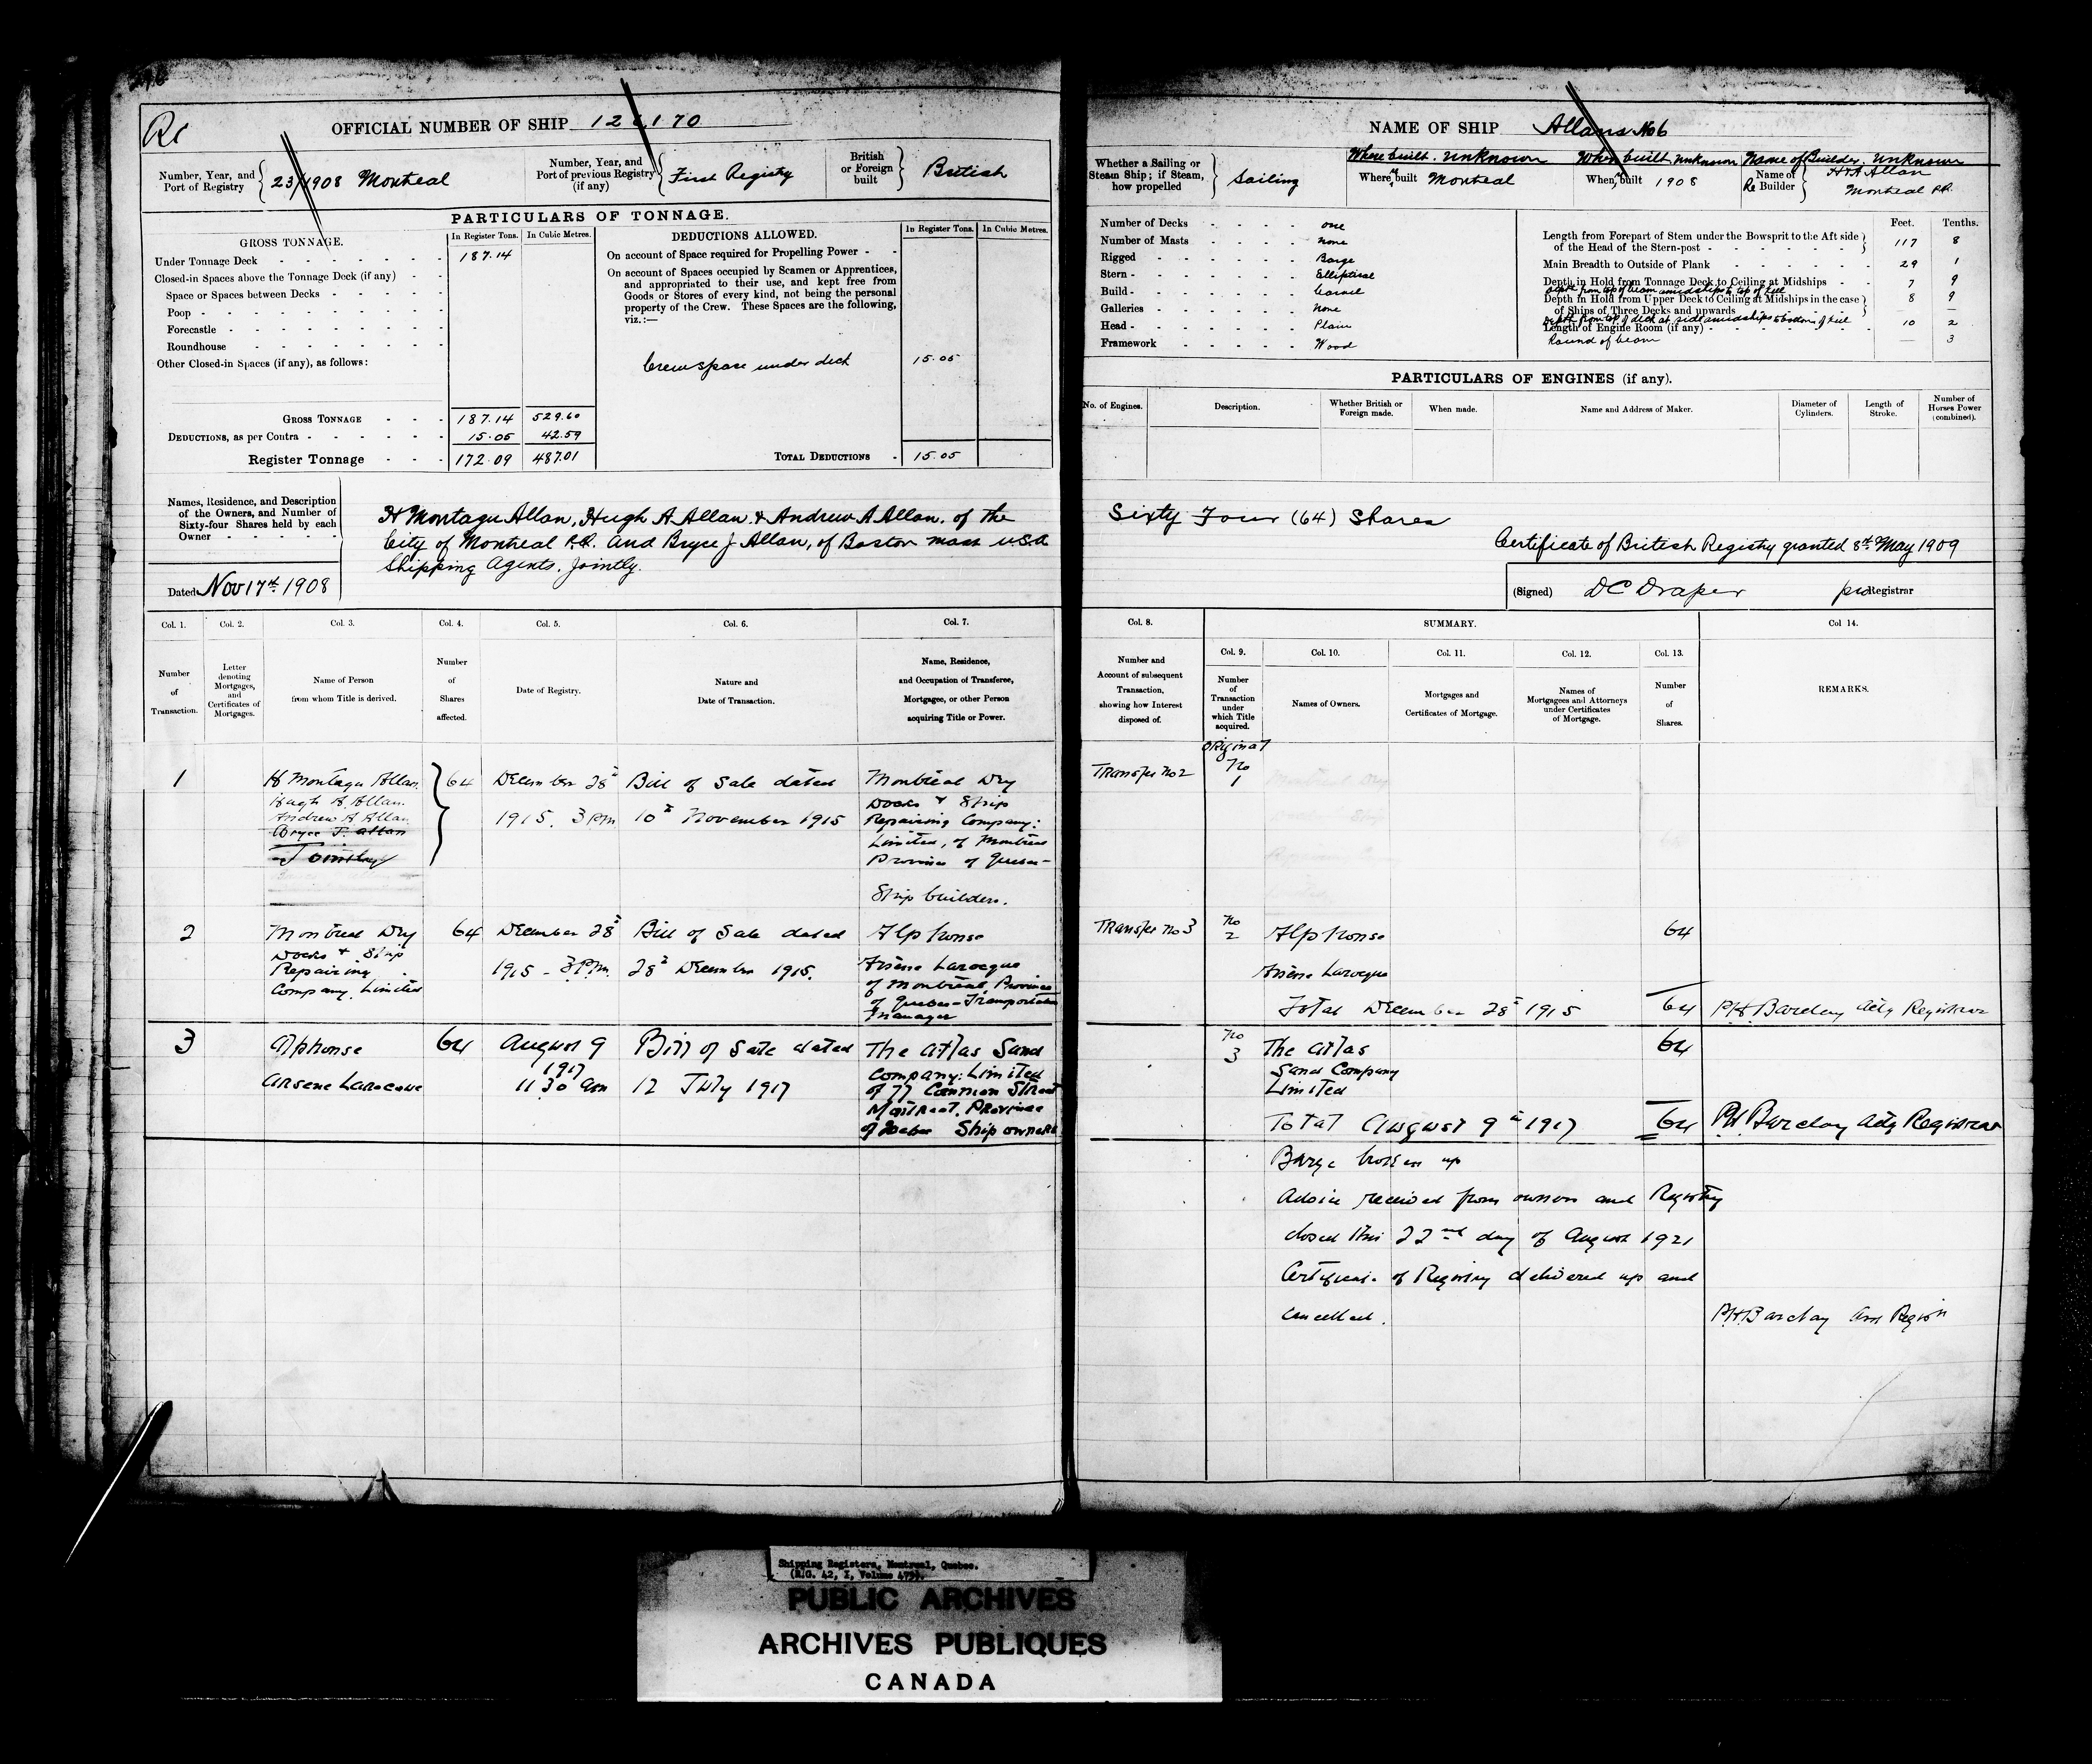 Rc
OFFICIAL NUMBER OF SHIP 126170
Number, Year, and Port of Registry 23/1908 Montreal
Number, Year, and Port of previous Registry (if any) First Registry
British or Foreign built British
PARTICULARS OF TONNAGE.
GROSS TONNAGE. In Register Tons. In Cubic Metres.
Under Tonnage Deck 187.14
Closed-in Spaces above the Tonnage Deck (if any)
Space or Spaces between Decks
Poop
Forecastle
Roundhouse
Other Closed-in Spaces (if any), as follows:
GROSS TONNAGE 187.14 529.60
DEDUCTIONS, as per Contra 15.05 42.59
Register Tonnage 172.09 487.01
DEDUCTIONS ALLOWED. In Register Tons. In Cubic Metres.
On account of Space required for Propelling Power
On account of Spaces occupied by Seamen or Apprentices,
and appropriated to their use, and kept free from
Goods or Stores of every kind, not being the personal
property of the Crew. These Spaces are the following,
viz.:—
Crew space under deck 15.05
TOTAL DEDUCTIONS 15.05
Names, Residence, and Description
of the Owners, and Number of
Sixty-four Shares held by each
Owner
H Montagu Allan, Hugh A Allan, & Andrew A Allan, of the
City of Montreal P.Q. and Bryce J Allan, of Boston Mass U.S.A
Shipping Agents. Jointly.
Dated Nov 17th 1908
Col. 1. Col. 2. Col. 3. Col. 4. Col. 5. Col. 6. Col. 7.
Number of Transaction.
Letter denoting Mortgages, and Certificates of Mortgages.
Name of Person from whom Title is derived.
Number of Shares affected.
Date of Registry.
Nature and Date of Transaction.
Name, Residence, and Occupation of Transferee, Mortgagee, or other Person acquiring Title or Power.
1 H Montagu Allan 64 December 28th Bill of Sale dated Montreal Dry
Hugh A. Allan Docks & Ship
Andrew A Allan 1915. 3 PM 10th November 1915 Repairing Company:
Bryce J. Allan Limited, of Montreal
Jointly Province of Quebec-
Ship builders.
2 Montreal Dry 64 December 28th Bill of Sale dated Alphonse
Docks & Ship
Repairing 1915 - 3 P.m. 28th December 1915. Arsene Larocque
Company Limited of Montreal, Province
of Quebec - Transportation
Manager
3 Alphonse 64 August 9 Bill of Sale dated The Atlas Sand
1917 Company: Limited
Arsene Larocque 11 30 am 12 July 1917 of 77 Common Street
Montreal, Province
of Quebec Ship owners
NAME OF SHIP Allans No 6
Whether a Sailing or Steam Ship; if Steam, how propelled Sailing
Where built. Unknown When built Unknown Name of Builder. Unknown
Where Re built Montreal When Re built 1908 Name of Re Builder H & A Allan
Montreal P.Q.
Number of Decks one
Number of Masts none
Rigged Barge
Stern Elliptical
Build Carvel
Galleries None
Head Plain
Framework Wood
Feet. Tenths.
Length from Forepart of Stem under the Bowsprit to the Aft side
of the Head of the Stern-post 117 8
Main Breadth to Outside of Plank 29 1
Depth in Hold from Tonnage Deck to Ceiling at Midships 7 9
Depth from top of beam amidships to top of keel 8 9
Depth in Hold from Upper Deck to Ceiling at Midships in the case
of Ships of Three Decks and upwards
Depth from top of deck at side amidships to bottom of keel 10 2
Length of Engine Room (if any)
Round of beam — 3
PARTICULARS OF ENGINES (if any).
No. of Engines. Description. Whether British or Foreign made. When made. Name and Address of Maker. Diameter of Cylinders. Length of Stroke. Number of Horses Power (combined).
Sixty Four (64) Shares
Certificate of British Registry granted 8th May 1909
(Signed) D C Draper pro Registrar
Col. 8. SUMMARY. Col 14.
Col. 9. Col. 10. Col. 11. Col. 12. Col. 13.
Number and Account of subsequent Transaction, showing how Interest disposed of.
Number of Transaction under which Title acquired.
Names of Owners.
Mortgages and Certificates of Mortgage.
Names of Mortgagees and Attorneys under Certificates of Mortgage.
Number of Shares.
REMARKS.
Original
Transfer No 2 No 1
Transfer No 3 No 2 Alphonse 64
Arsene Larocque
Total December 28th 1915 64 P.H. Barclay Actg Registrar
No 3 The Atlas 64
Sand Company
Limited
Total August 9th 1917 64 P.H. Barclay Actg Registrar
Barge broken up
Advice received from owners and Registry
closed this 22nd day of August 1921
Certificate of Registry delivered up and
cancelled.
P.H. Barclay
Shipping Registers, Montreal, Quebec.
(R.G. 42, I, Volume
PUBLIC ARCHIVES
ARCHIVES PUBLIQUES
CANADA